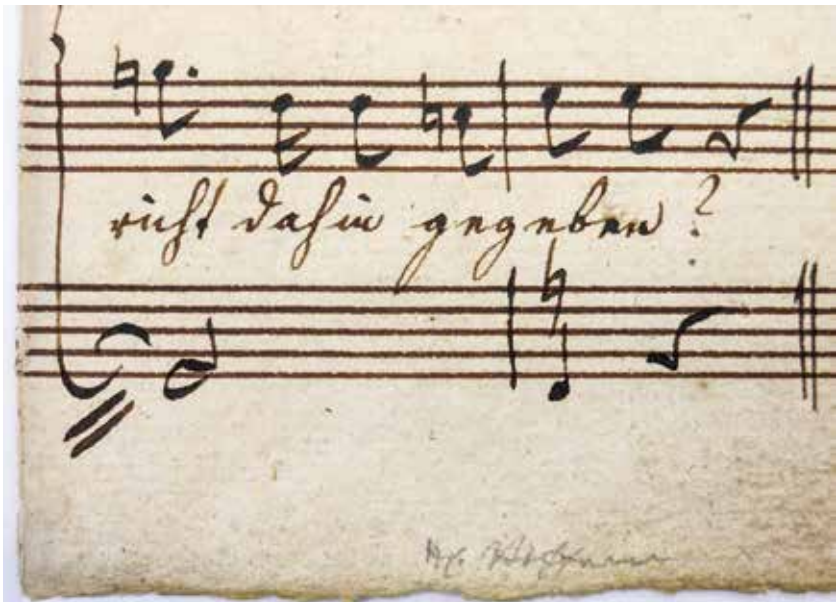 richt dahin gegeben?